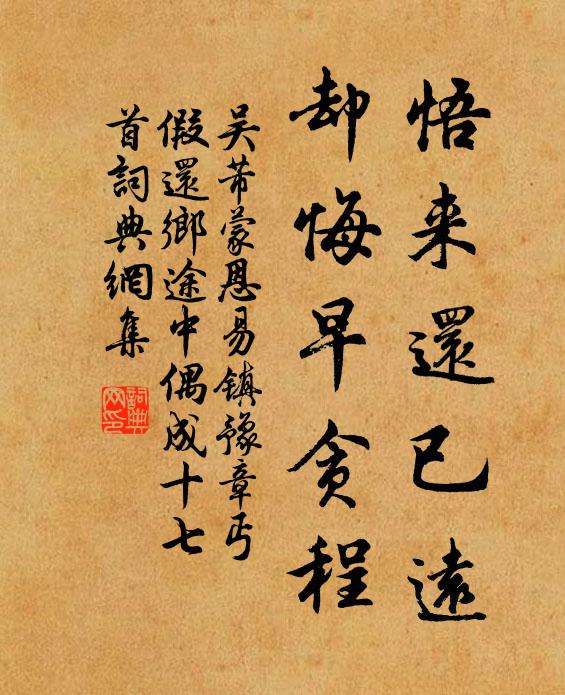 悟来還已遠
却悔早貪程
吴芾蒙恩易鎮豫章丐
假還鄉途中偶成十七
首詞典網集
詞典网印